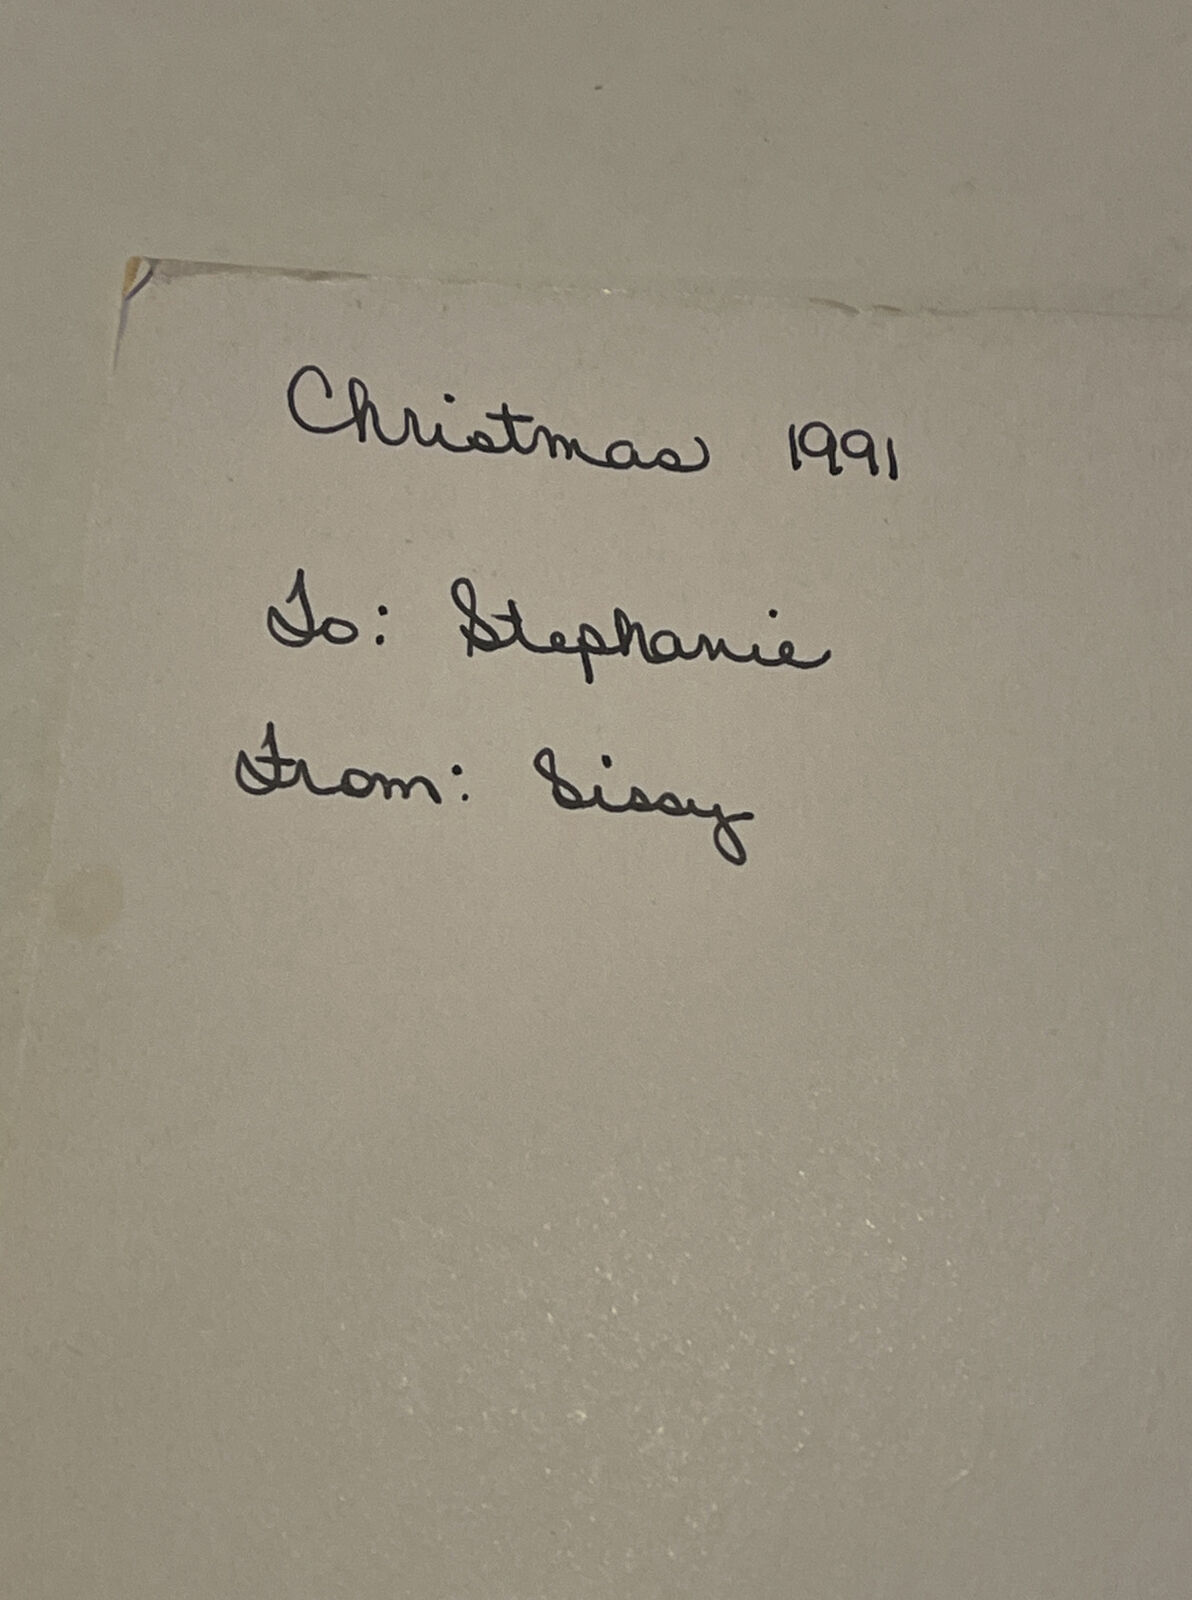 Christmas 1991
To: Stephanie
From: Sissy